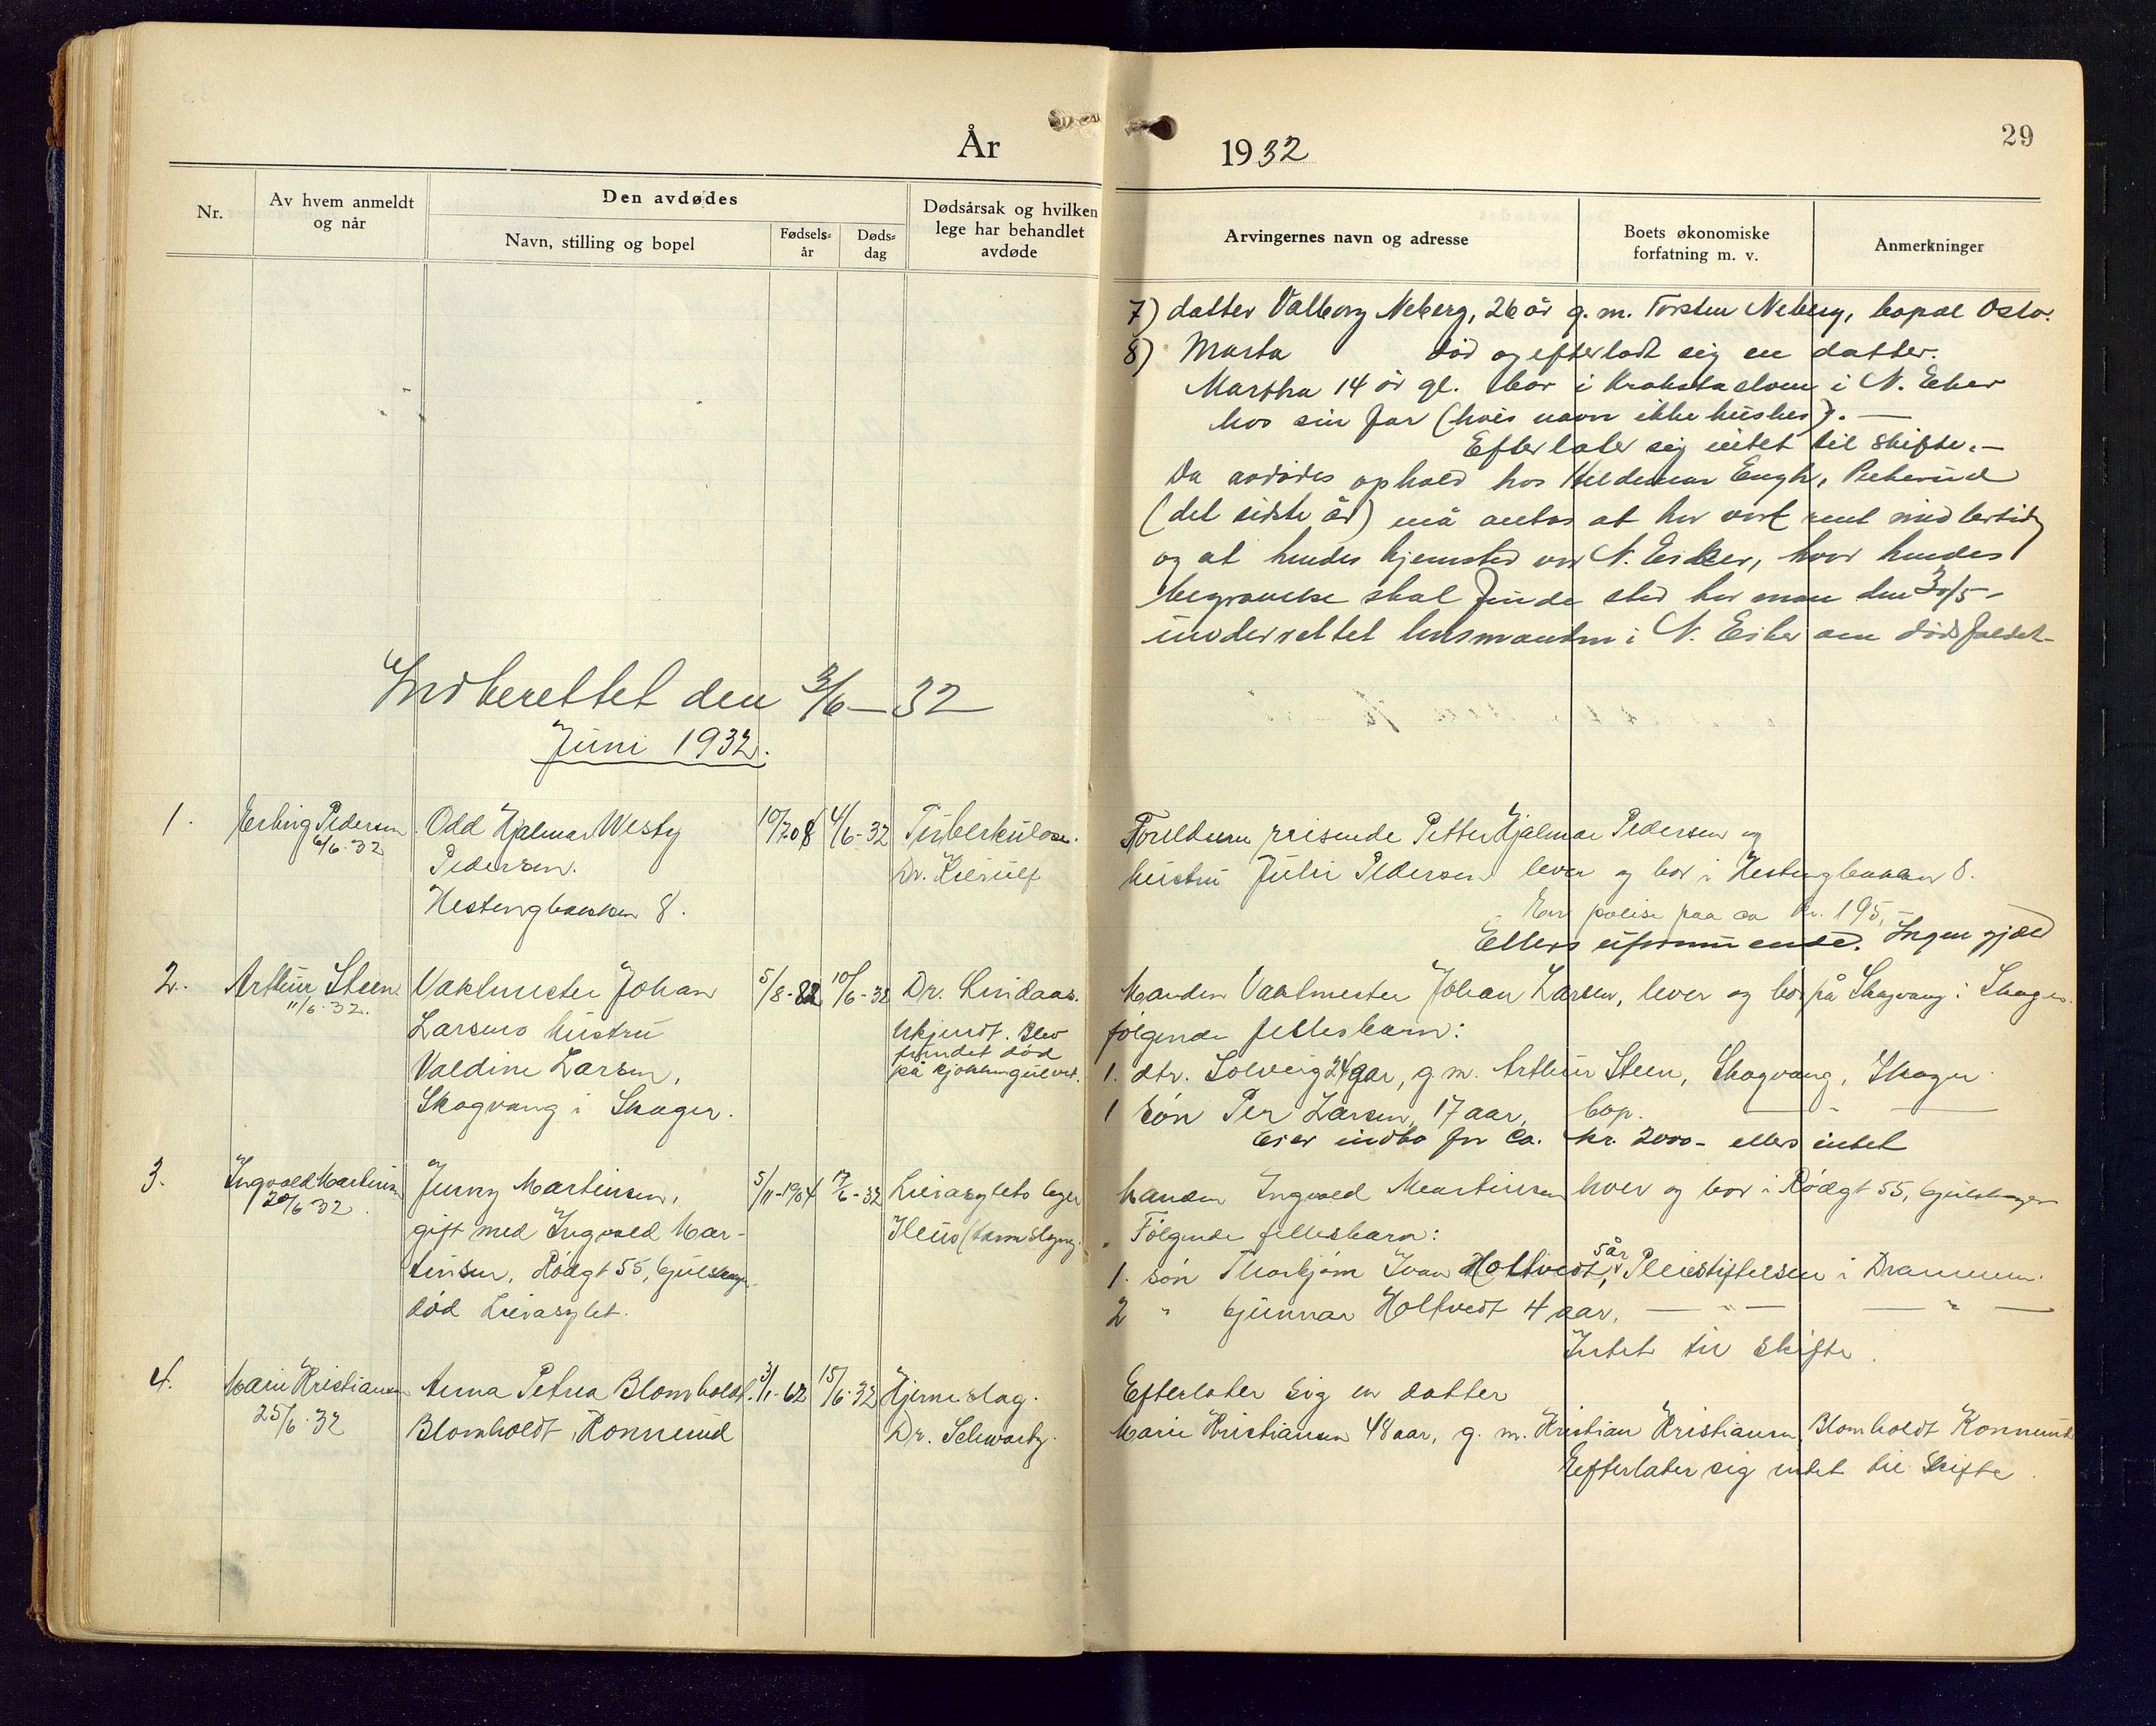 År
1932
29
Nr.
Av hvem anmeldt
og når
Den avdødes
Navn, stilling og bopel
Fødsels-
år
Døds-
dag
Dødsårsak og hvilken
lege har behandlet
avdøde
Arvingernes navn og adresse
Boets økonomiske
forfatning m. v.
Anmerkninger
7) datter Valborg Neberg, 26 år g. m. Torsten Neberg, bopæl Oslo.
8) Marta død og efterlodt sig en datter.
Martha 14 år gl. bor i i N. Eker
hos sin far (hvis navn ikke huskes). —
Efterlater sig intet til skifte. —
Da avdødes ophold hos Engh,
(det sidste år) må antas at ha vært rent midlertidig
og at hendes hjemsted var N. Eiker, hvor hendes
begravelse skal finde sted har man den 30/5 -
underrettet lensmanden i N. Eiker om dødsfaldet -
Indberettet den 3/6 - 32
Juni 1932.
1.
Erling Pedersen
6/6 32
Odd Hjalmar Westy
Pedersen.
Hestengbakken 8.
10/7 08
4/6-32
Tuberkulose.
Dr. Kierulf
Foreldrene reisende Petter Hjalmar Pedersen og
hustru Julie Pedersen lever og bor i Hestengbakken 8.
En polise paa ca kr. 195,-
Ellers uformuende. Ingen gjæld
2.
Arthur Steen.
11/6.32.
Vaktmester Johan
Larsens hustru
Valdine Larsen,
Skogvang i Skoger.
5/8-82
10/6-32
Dr. Lindaas.
Ukjendt. Blev
fundet død
på kjøkkengulvet.
Manden Vaktmester Johan Larsen, lever og bor på Skogvang i Skoger.
følgende fellesbarn:
1. dtr. Solveig 24 aar, g. m. Arthur Steen, Skogvang, Skoger.
1 søn Per Larsen, 17 aar, bop. — " —
Eier indbo for ca. kr. 2000 - ellers intet
3.
Ingvald Martinsen
20/6 32.
Jenny Martinsen,
gift med Ingvald Mar-
tinsen, Rødgt 55, Gulskogen.
død Lierasylet.
5/11-1904
17/6-32
Lierasylets leger
Ileus (tarmslyng.
Manden Ingvald Martinsen lever og bor i Rødgt 55, Gulskogen
Følgende fellesbarn:
1. søn Thorbjørn Ivar Holtvedt, 5 år, Pleiestiftelsen i Drammen.
2 " Gunnar Holtvedt 4 aar, — " — — " —
Intet til skifte.
4.
Marie Kristiansen
25/6.32
Anna Petrea Blomholdt.
Blomholdt, Konnerud
3/1-62
15/6-32
Hjerneslag.
Dr. Schwartz.
Efterlater sig en datter
Marie Kristiansen 48 aar, g. m. Kristian Kristiansen, Blomholdt Konnerud
Eefterlater sig intet til skifte.